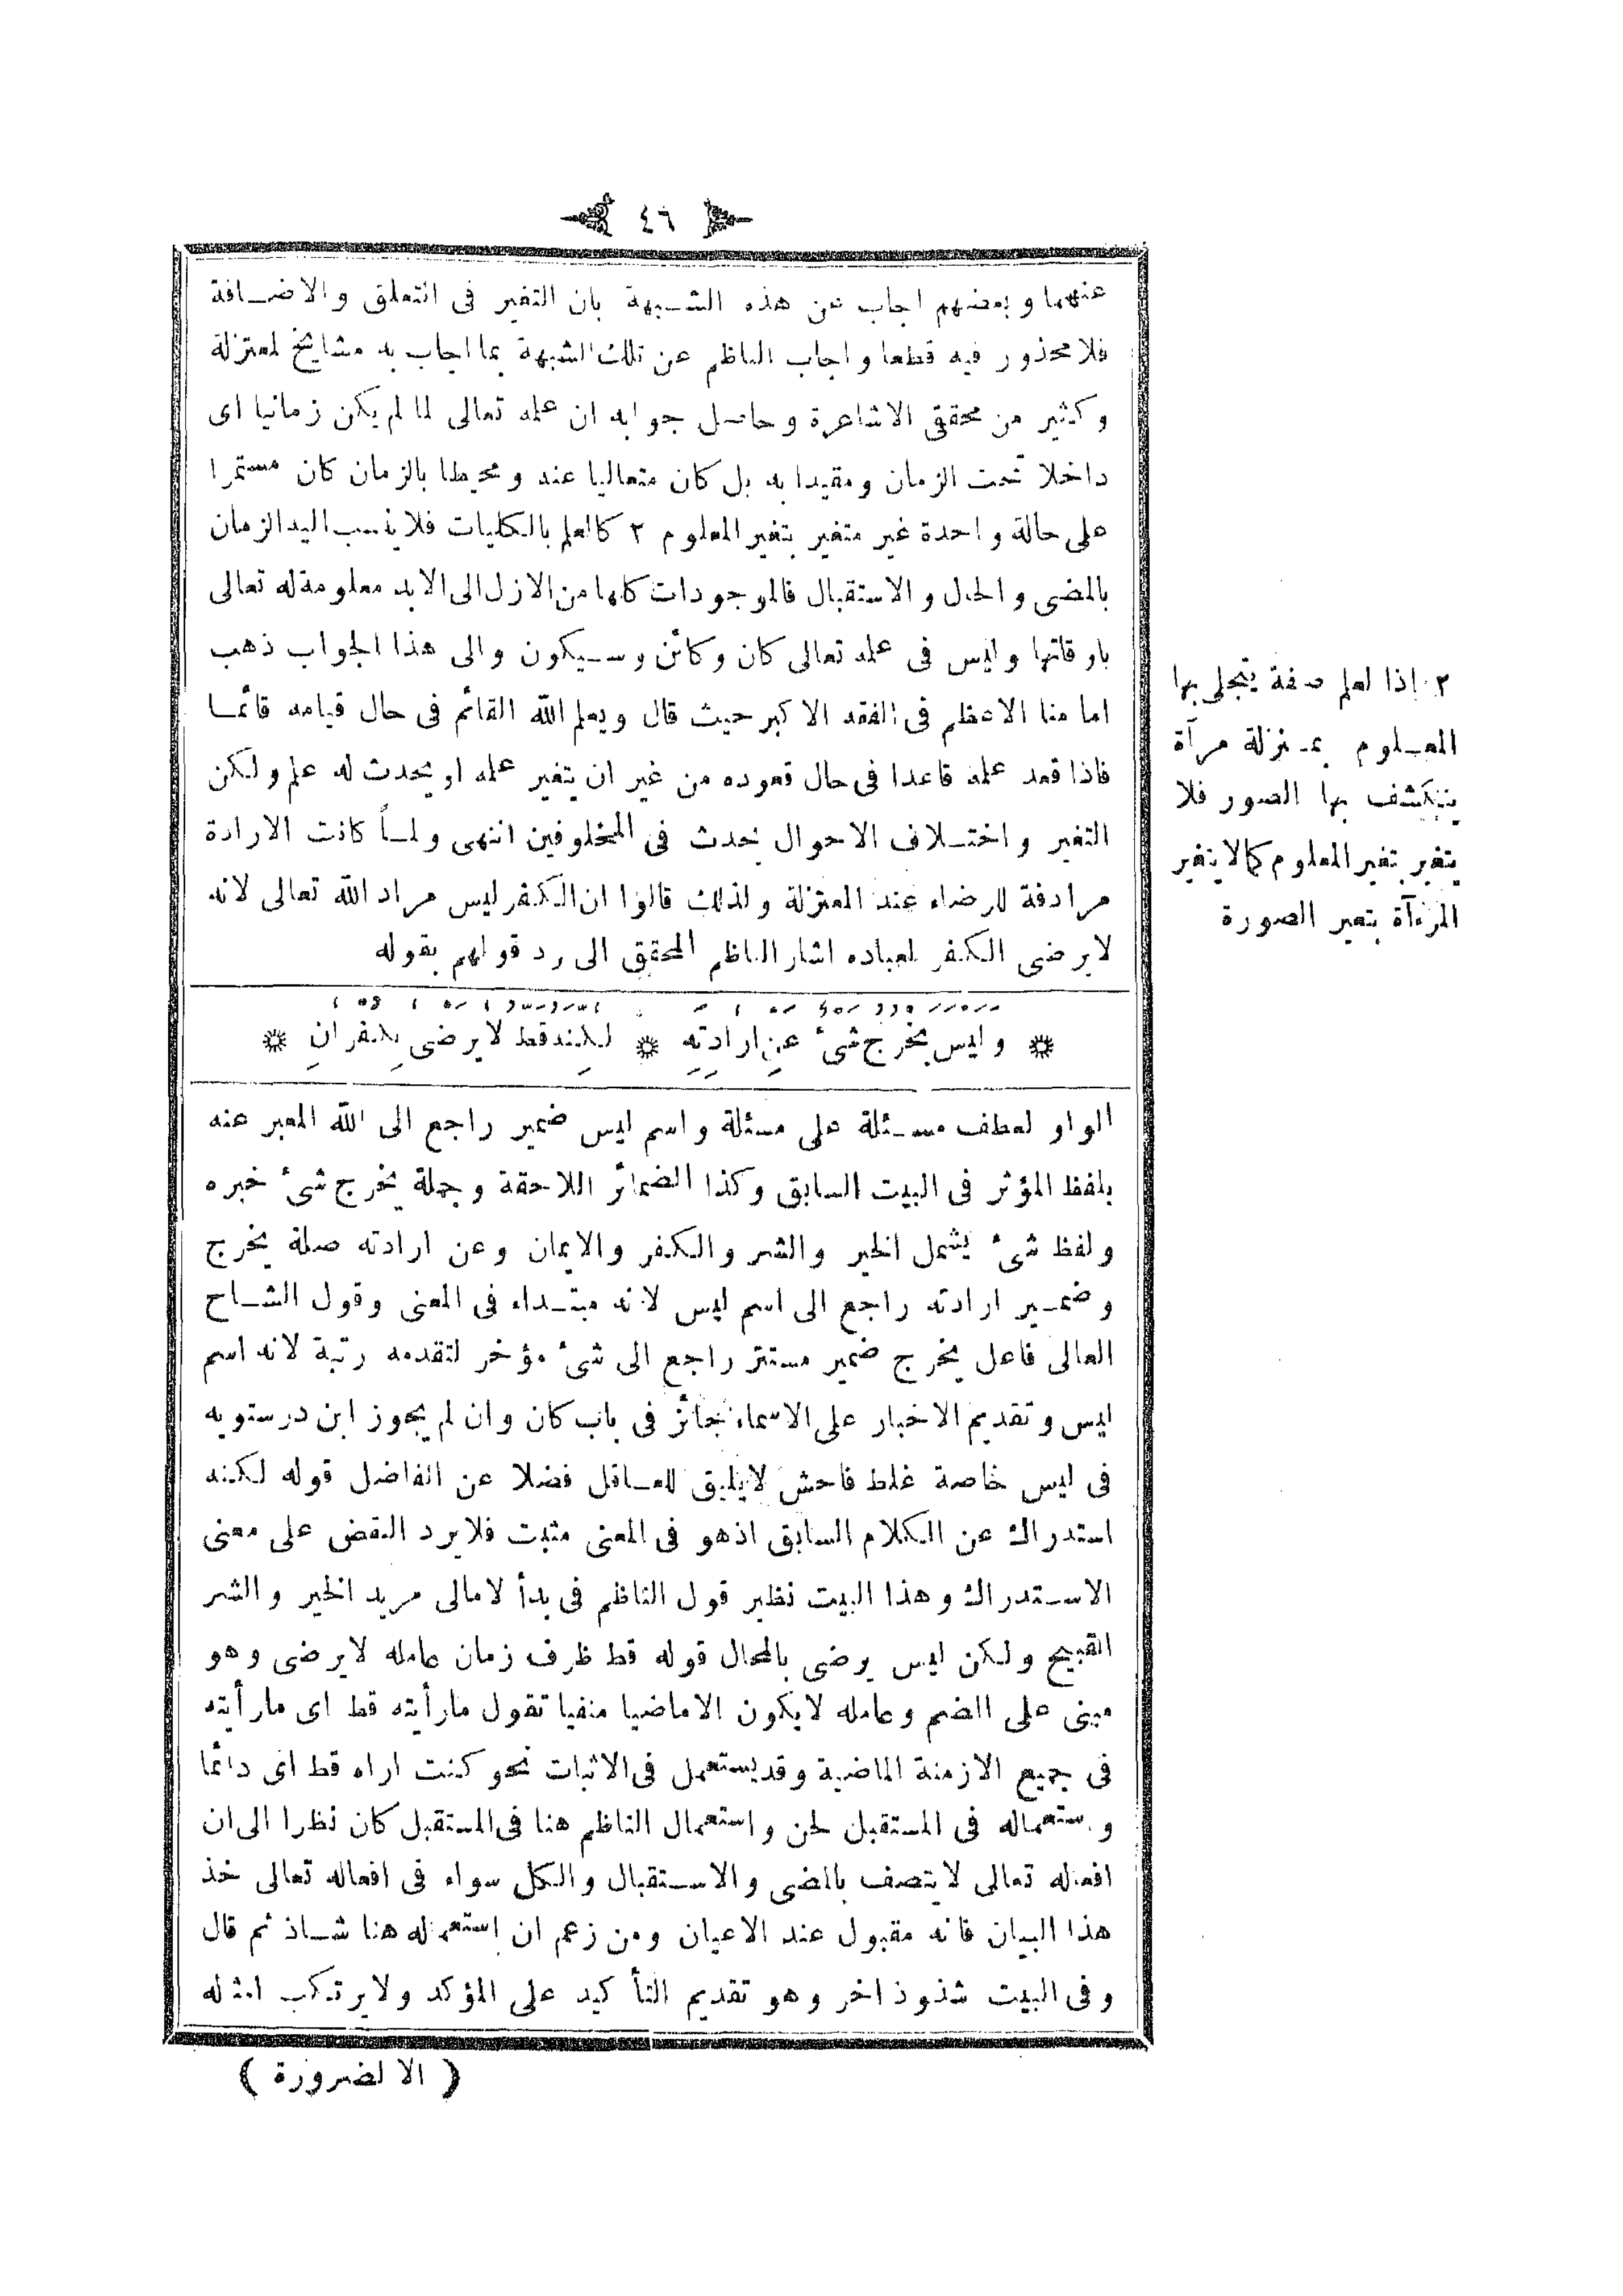 ٤٦
عنهما وبعضهم اجاب عن هذه الشبهة بان التغير فى التعلق والاضافة
فلا محذور فيه قطعا واجاب الناظم عن تلك الشبهة بما اجاب به مشايخ لمعتزلة
وكثير من محققى الاشاعرة وحاصل جوابه ان علمه تعالى لما لم يكن زمانيا اى
داخلا تحت الزمان ومقيدا به بل كان متعاليا عنه ومحيطا بالزمان كان مستمرا
على حالة واحدة غير متغير بتغير المعلوم ٢ كالعلم بالكليات فلا ينسب اليه الزمان
بالمضى والحال والاستقبال فالموجودات كلها من الازل الى الابد معلومة له تعالى
باوقاتها وليس فى علمه تعالى كان وكائن وسيكون والى هذا الجواب ذهب
امامنا الاعظم فى الفقه الاكبر حيث قال ويعلم الله القائم فى حال قيامه قائما
فاذا قعد علمه قاعدا فى حال قعوده من غير ان يتغير علمه او يحدث له علم ولكن
التغير واختلاف الاحوال يحدث فى المخلوقين انتهى ولما كانت الارادة
مرادفة للرضاء عند المعتزلة ولذلك قالوا ان الكفر ليس مراد الله تعالى لانه
لايرضى الكفر لعباده اشار الناظم المحقق الى رد قولهم بقوله
* وليس يخرج شئ عن ارادته * لكنه قط لا يرضى بكفران *
الواو لعطف مسئلة على مسئلة واسم ليس ضمير راجع الى الله المعبر عنه
بلفظ المؤثر فى البيت السابق وكذا الضمائر اللاحقة وجملة يخرج شئ خبره
ولفظ شئ يشمل الخير والشر والكفر والايمان وعن ارادته صلة يخرج
وضمير ارادته راجع الى اسم ليس لانه مبتداء فى المعنى وقول الشاح
العالى فاعل يخرج ضمير مستتر راجع الى شئ مؤخر لتقدمه رتبة لانه اسم
ليس وتقديم الاخبار على الاسماء جائز فى باب كان وان لم يجوز ابن درستويه
فى ليس خاصة غلط فاحش لايليق للعاقل فضلا عن الفاضل قوله لكنه
استدراك عن الكلام السابق اذهو فى المعنى مثبت فلا يرد النقض على معنى
الاستدراك وهذا البيت نظير قول الناظم فى بدأ لامالى مريد الخير والشر
القبيح ولكن ليس يرضى بالمحال قوله قط ظرف زمان عامله لايرضى وهو
مبنى على الضم وعامله لايكون الا ماضيا منفيا تقول مارأيته قط اى مارأيته
فى جميع الازمنة الماضية وقد يستعمل فى الاثبات نحو كنت اراه قط اى دائما
وستعماله فى المستقبل لحن واستعمال الناظم هنا فى المستقبل كان نظرا الى ان
افعاله تعالى لا يتصف بالمضى والاستقبال والكل سواء فى افعاله تعالى خذ
هذا البيان فانه مقبول عند الاعيان ومن زعم ان استعماله هنا شاذ ثم قال
وفى البيت شذوذ اخر وهو تقديم التأكيد على المؤكد ولا يرتكب امثاله
( الا لضرورة )
٢ إذا لعلم صفة يتجلى بها
المعلوم بمنزلة مرآة
ينكشف بها الصور فلا
يتغير بتغير المعلوم كما لا يتغير
المرءآة بتغير الصورة